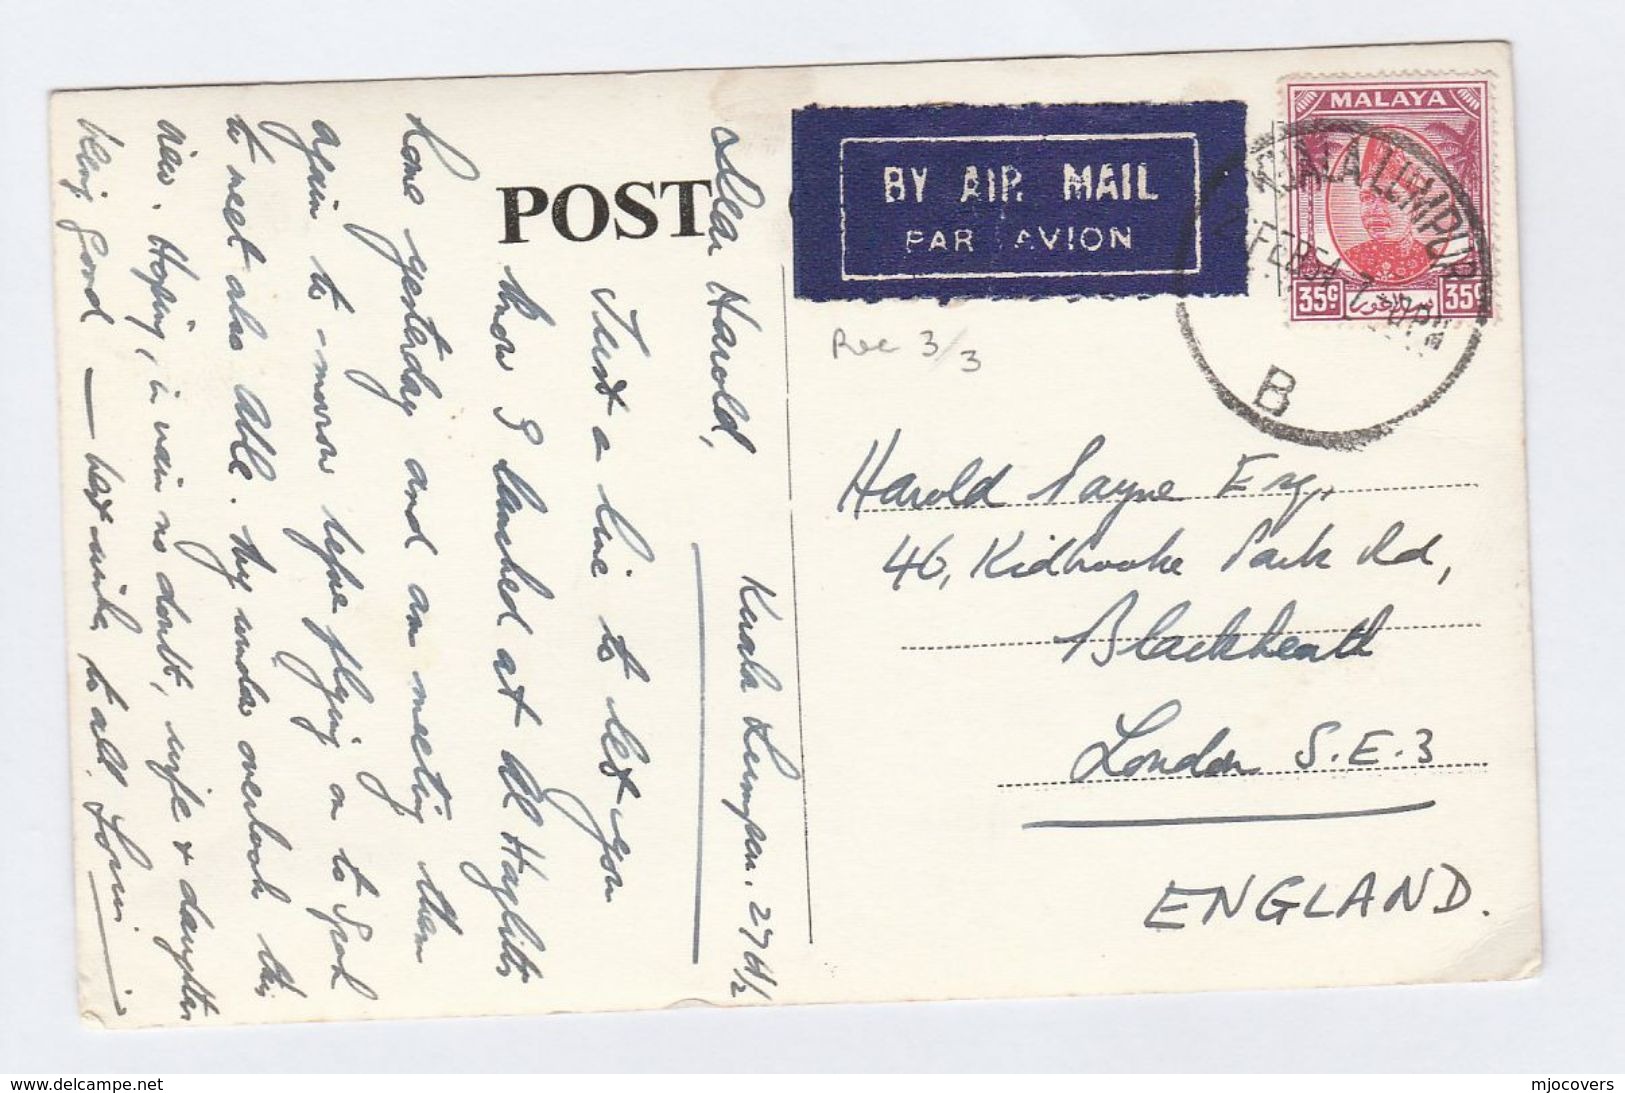 POST
BY AIR MAIL
PAR AVION
MALAYA
35c
35c
KUALA LUMPUR
FEB 54
PM
B
Rec 3/3
Kuala Lumpur. 27th/2
Dear Harold,
Just a line to let you
know I lunched at Al Haglitts
home yesterday and am meeting them
again to-morrow before flying on to
to meet also Able. My window overlooks this
view. Hoping, in vain no doubt, wife & daughter
being good — best wishes to all.
Harold Payne Esq,
46, Kidbrooke Park Rd,
Blackheath
London S.E.3
ENGLAND.
www.delcampe.net
mjocovers